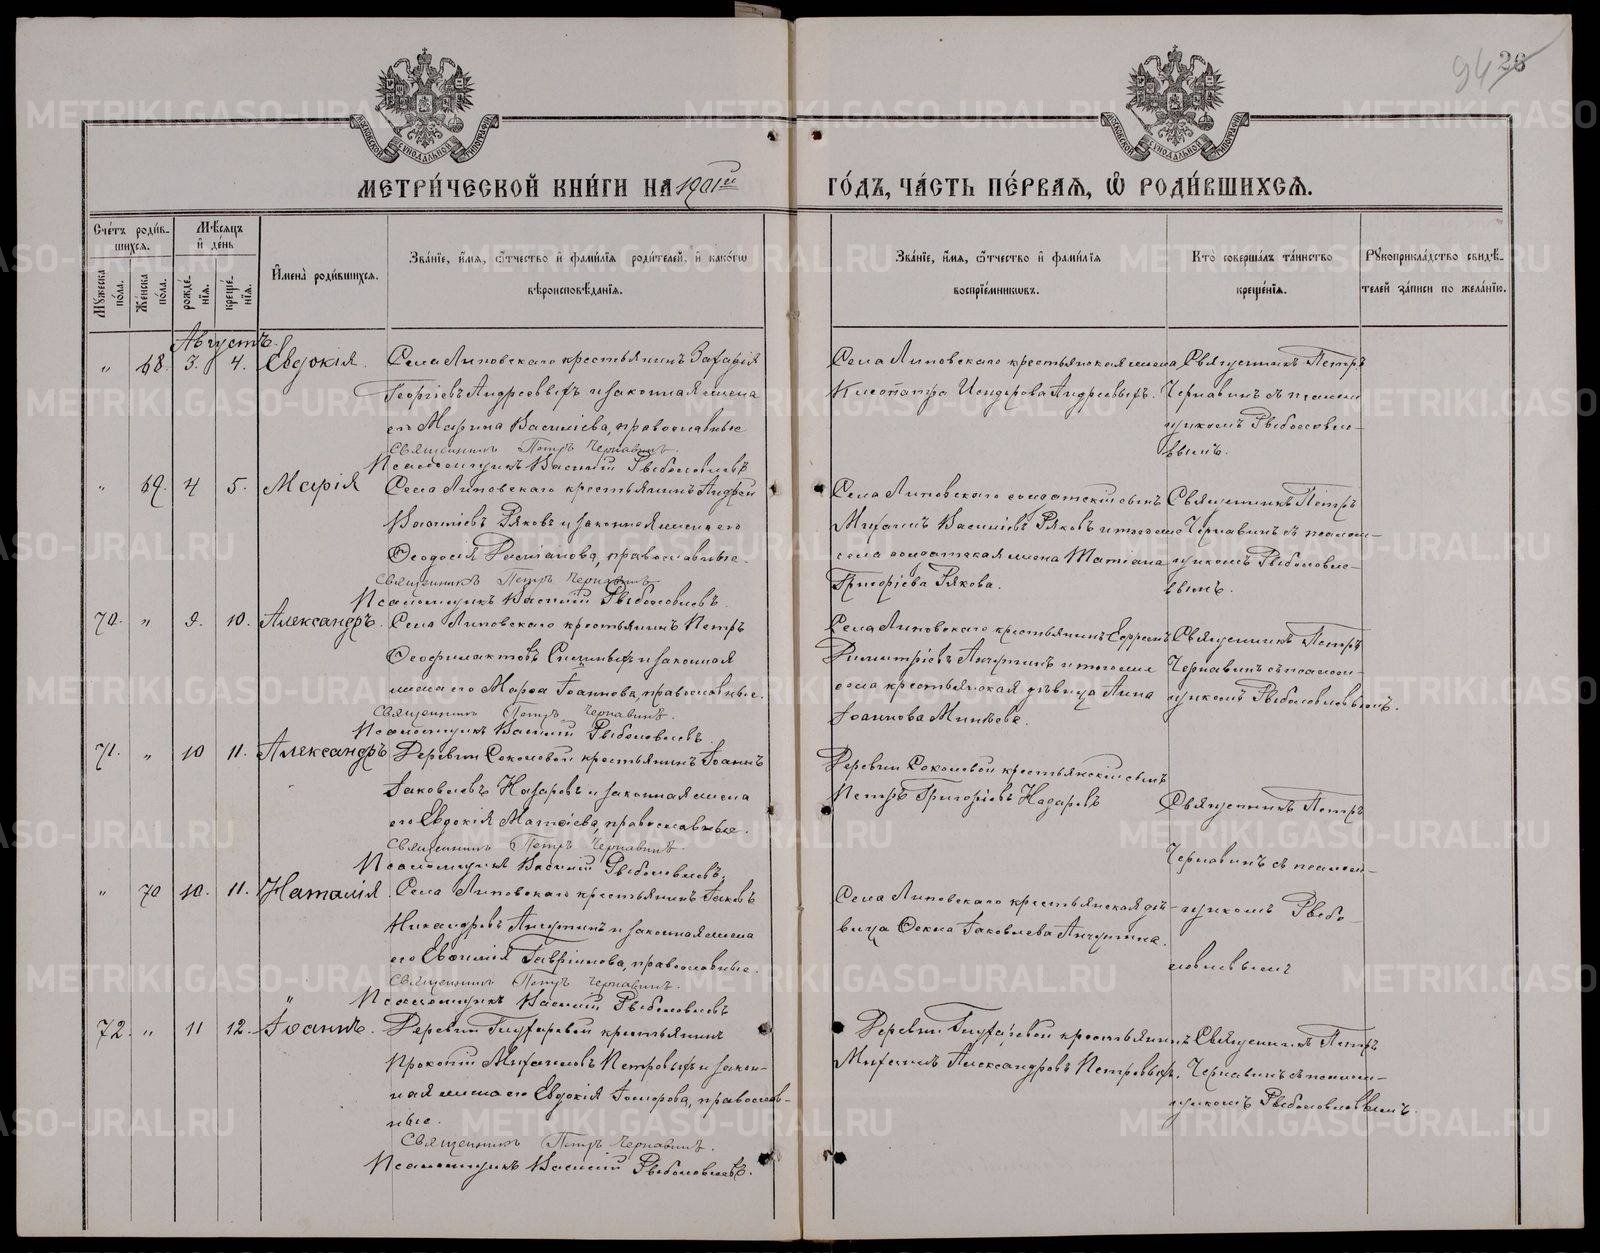 94 26
МЕТРИ́ЧЕСКОЙ КНИ́ГИ НА 1901й ГО́ДЪ, ЧА́СТЬ ПЕ́РВАЯ, Ѡ РОДИ́ВШИХСЯ.
Сче́тъ роди́в-
шихся.
Мѣсяцъ
и́ де́нь
Му́жеска по́ла.
Же́нска по́ла.
рожде́-нїя.
креще́-нїя.
И҆мена̀ роди́вшихся.
Зва́нїе, и҆́мя, ѻ҆́тчество и҆ фами́лїя роди́телей, и҆ како́гѡ
вѣроисповѣ́данїя.
Зва́нїе, и҆́мя, ѻ҆́тчество и҆ фами́лїя
воспрїе́мникѡвъ.
Кто̀ соверша́лъ та́инство
креще́нїя.
Рꙋкоприкла́дство свидѣ́-
телей за́писи по жела́нїю.
Августъ.
" 68. 3. 4. Евдокія.
Села Липовскаго крестьянинъ Захарія
Георгіевъ Андреевыхъ и законная жена
его Марина Васильева, православные
Священникъ Петръ Чернавинъ.
Псаломщикъ Василій Рыболовлевъ
Села Липовскаго крестьянская жена
Клеопатра Исидорова Андреевыхъ.
Священникъ Петръ
Чернавинъ съ псалом
щикомъ Рыболовле-
вымъ.
" 69. 4 5. Марія
Села Липовскаго крестьянинъ Андрей
Васильевъ Ряковъ и законная жена его
Ѳеодосія, православные.
Священникъ Петръ Чернавинъ
Псаломщикъ Василій Рыболовлевъ.
Села Липовскаго солдатскій сынъ
Михаилъ Васильевъ Ряковъ и того же
села солдатская жена Татіана
Григоріева Рякова.
Священникъ Петръ
Чернавинъ съ псалом-
щикомъ Рыболовле-
вымъ.
70. " 9. 10. Александръ.
Села Липовскаго крестьянинъ Петръ
Ѳеофилактовъ и законная
жена его Марѳа Іоаннова, православные.
Священникъ Петръ Чернавинъ.
Псаломщикъ Василій Рыболовлевъ
Села Липовскаго крестьянинъ Ефремъ
Димитріевъ Анчутинъ и того же
села крестьянская дѣвица Анна
Іоаннова Минѣева.
Священникъ Петръ
Чернавинъ съ псалом-
щикомъ Рыболовлевымъ.
71. " 10 11. Александръ
Деревни Соколовой крестьянинъ Іоаннъ
Іаковлевъ Назаровъ и законная жена
его Евдокія Матѳіева, православные.
Священникъ Петръ Чернавинъ.
Псаломщикъ Василій Рыболовлевъ.
Деревни Соколовой крестьянскій сынъ
Петръ Григоріевъ Назаровъ
Священникъ Петръ
Чернавинъ съ псалом-
" 70 10. 11. Наталія.
Села Липовскаго крестьянинъ Іаковъ
Никандровъ Анчутинъ и законная жена
его Евѳимія Гавріилова, православные.
Священникъ Петръ Чернавинъ.
Псаломщикъ Василій Рыболовлевъ
Села Липовскаго крестьянская дѣ-
вица Ѳекла Іаковлева Анчутина.
щикомъ Рыбо-
ловлевымъ
72. " 11 12. Іоаннъ.
Деревни крестьянинъ
Прокопій Михаиловъ Петровыхъ и закон-
ная жена его Евдокія, православ-
ные.
Священникъ Петръ Чернавинъ.
Псаломщикъ Василій Рыболовлевъ.
Деревни крестьянинъ
Михаилъ Александровъ Петровыхъ.
Священникъ Петръ
Чернавинъ съ псалом-
щикомъ Рыболовлевымъ.
METRIKI.GASO-URAL.RU